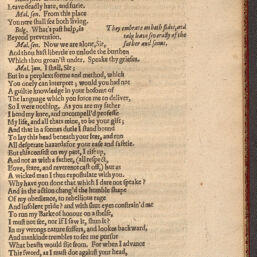 Leave deadly hate, and furie.
Mal. sen. From this place
You nere shall see both living.
Belg. What's past help, is They embrace on both sides, and
Beyond prevention. take leave severally of the
Mal. sen. Now we are alone, Sir, father and sonne.
And thou hast libertie to unlode the burthen
Which thou groan'st under. Speake thy griefes.
Mal. jun. I shall, Sir;
But in a perplext forme and method, which
You onely can interpret; would you had not
A guiltie knowledge in your bosome of
The language which you force me to deliver,
So I were nothing. As you are my father
I bend my knee, and uncompell'd professe
My life, and all thats mine, to be your gift;
And that in a sonnes dutie I stand bound
To lay this head beneath your feet, and run
All desperate hazards for your ease and safetie.
But this confest on my part, I rise up,
And not as with a father, (all respect,
Love, feare, and reverence cast off,) but as
A wicked man I thus expostulate with you.
Why have you done that which I dare not speake?
And in the action chang'd the humble shape
Of my obedience, to rebellious rage
And insolent pride? and with shut eyes constrain'd me
To run my Barke of honour on a shelfe,
I must not see, nor if I saw it, shun it?
In my wrongs nature suffers, and lookes backward,
And mankinde trembles to see me pursue
What beasts would flie from. For when I advance
This sword, as I must dot against your head,